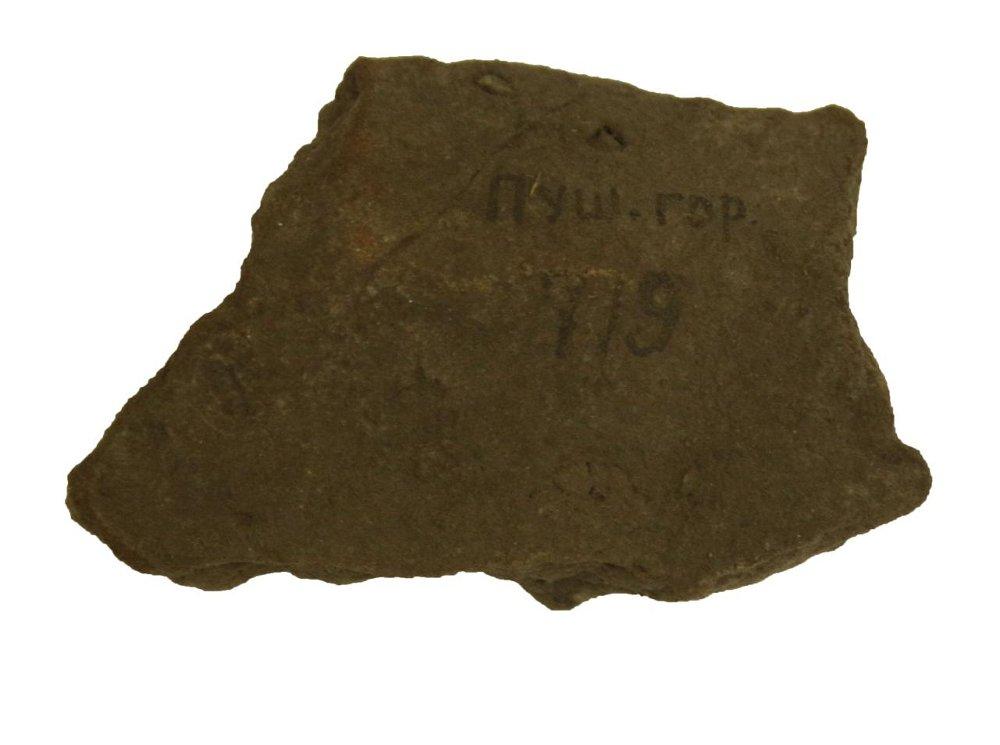 Пуш. гор.
719